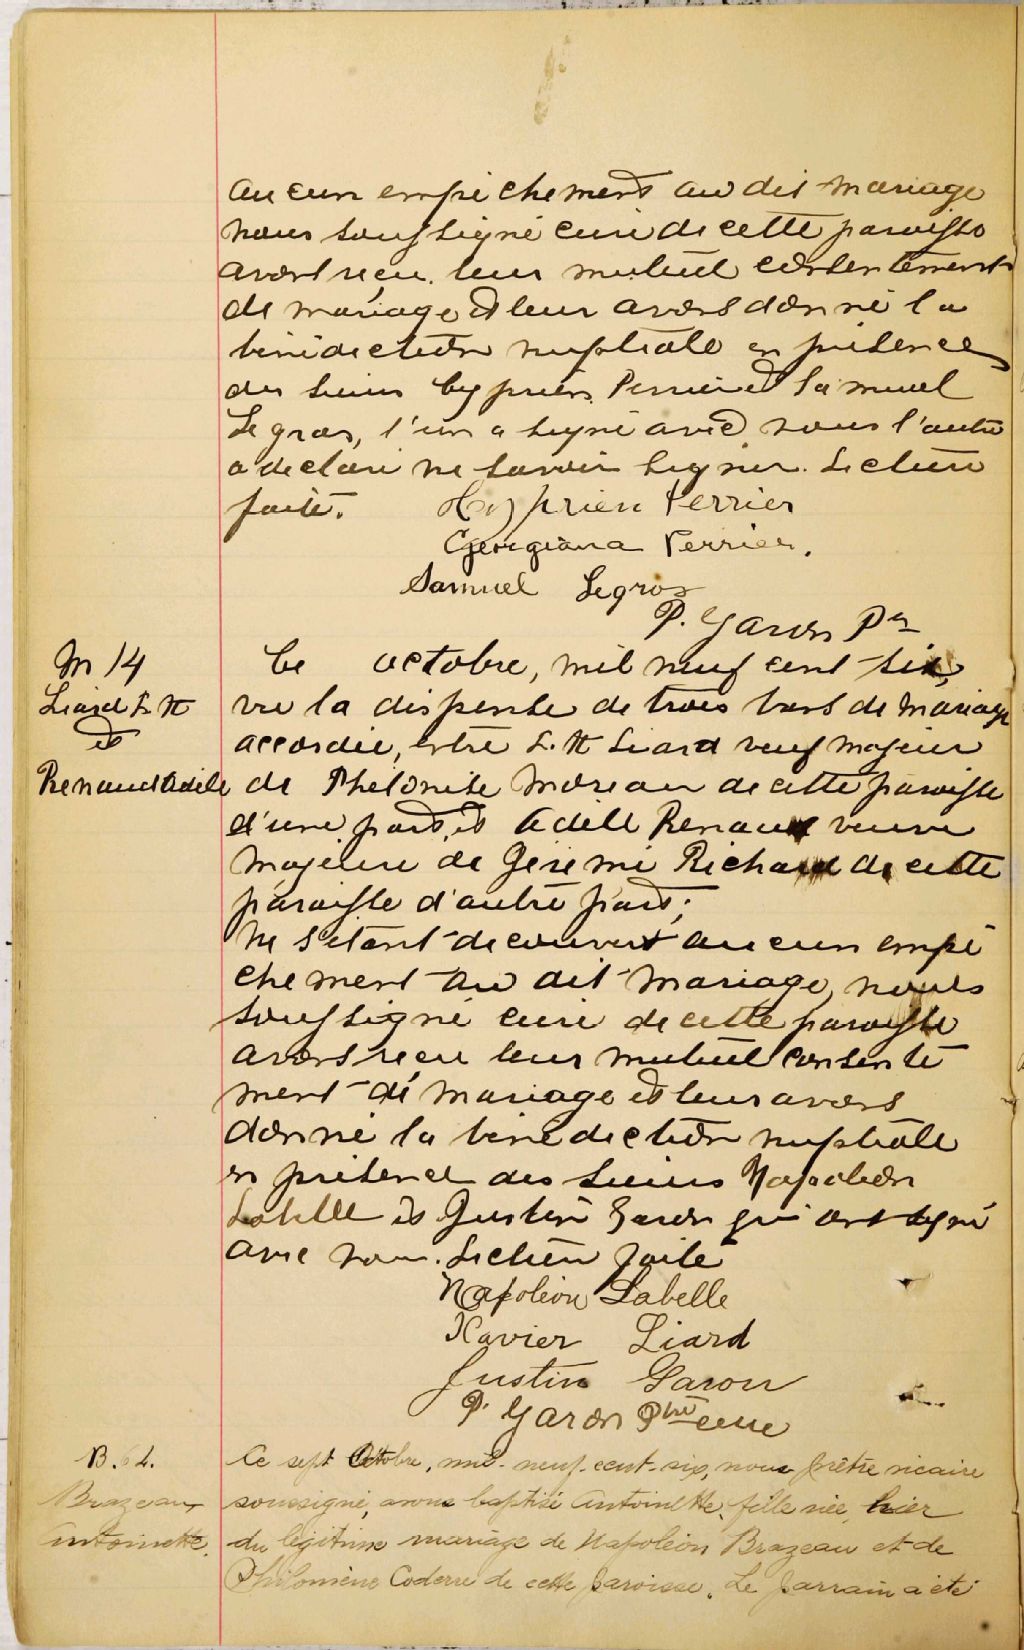 aucun empêchement au dit mariage
nous soussigné curé de cette paroisse
avons reçu leur mutuel consentement
de mariage et leur avons donné la
bénédiction nuptiale en présence
des sieurs Cyprien Perrier et Samuel
Legros, l'un a signé avec nous l'autre
a déclaré ne savoir signer. Lecture
faite.
Cyprien Perrier
Georgiana Perrier.
Samuel Legros
P. Garon Ptre
M 14
Liard F. X
et
Renaud Adèle
Ce octobre, mil neuf cent six,
vu la dispense de trois bans de mariage
accordée, entre F. X Liard veuf majeur
de Philonise Moreau de cette paroisse
d'une part, et Adèle Renaud veuve
majeure de Jérémi Richard de cette
paroisse d'autre part;
ne s'étant découvert aucun empê
chement au dit mariage, nous
soussigné curé de cette paroisse
avons reçu leur mutuel consente
ment de mariage et leur avons
donné la bénédiction nuptiale
en présence des sieurs Napoléon
Labelle et Justin Garon qui ont signé
avec nous. Lecture faite
Napoléon Labelle
Xavier Liard
Justin Garon
P. Garon Ptre curé
B. 62.
Brazeau
Antoinette.
Ce sept Octobre, mil-neuf-cent-six, nous prêtre vicaire
soussigné, avons baptisé Antoinette, fille née hier
du légitime mariage de Napoléon Brazeau et de
Philomène Coderre de cette paroisse. Le parrain a été